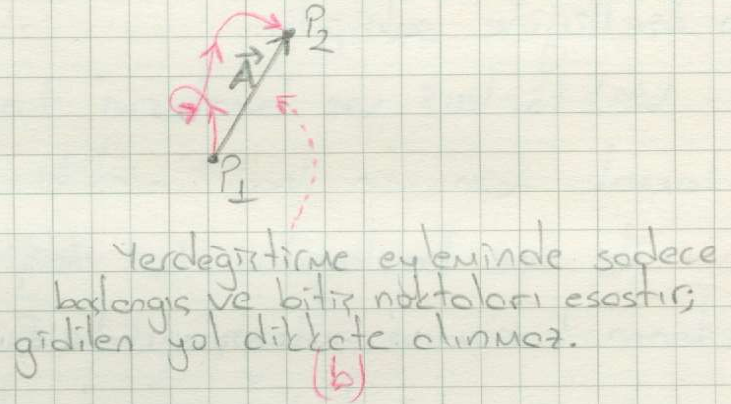 P2
A
P1
Yerdeğiştirme eyleminde sadece
başlangıs ve bitiş noktaları esastır;
gidilen yol dikkate alınmaz.
(b)